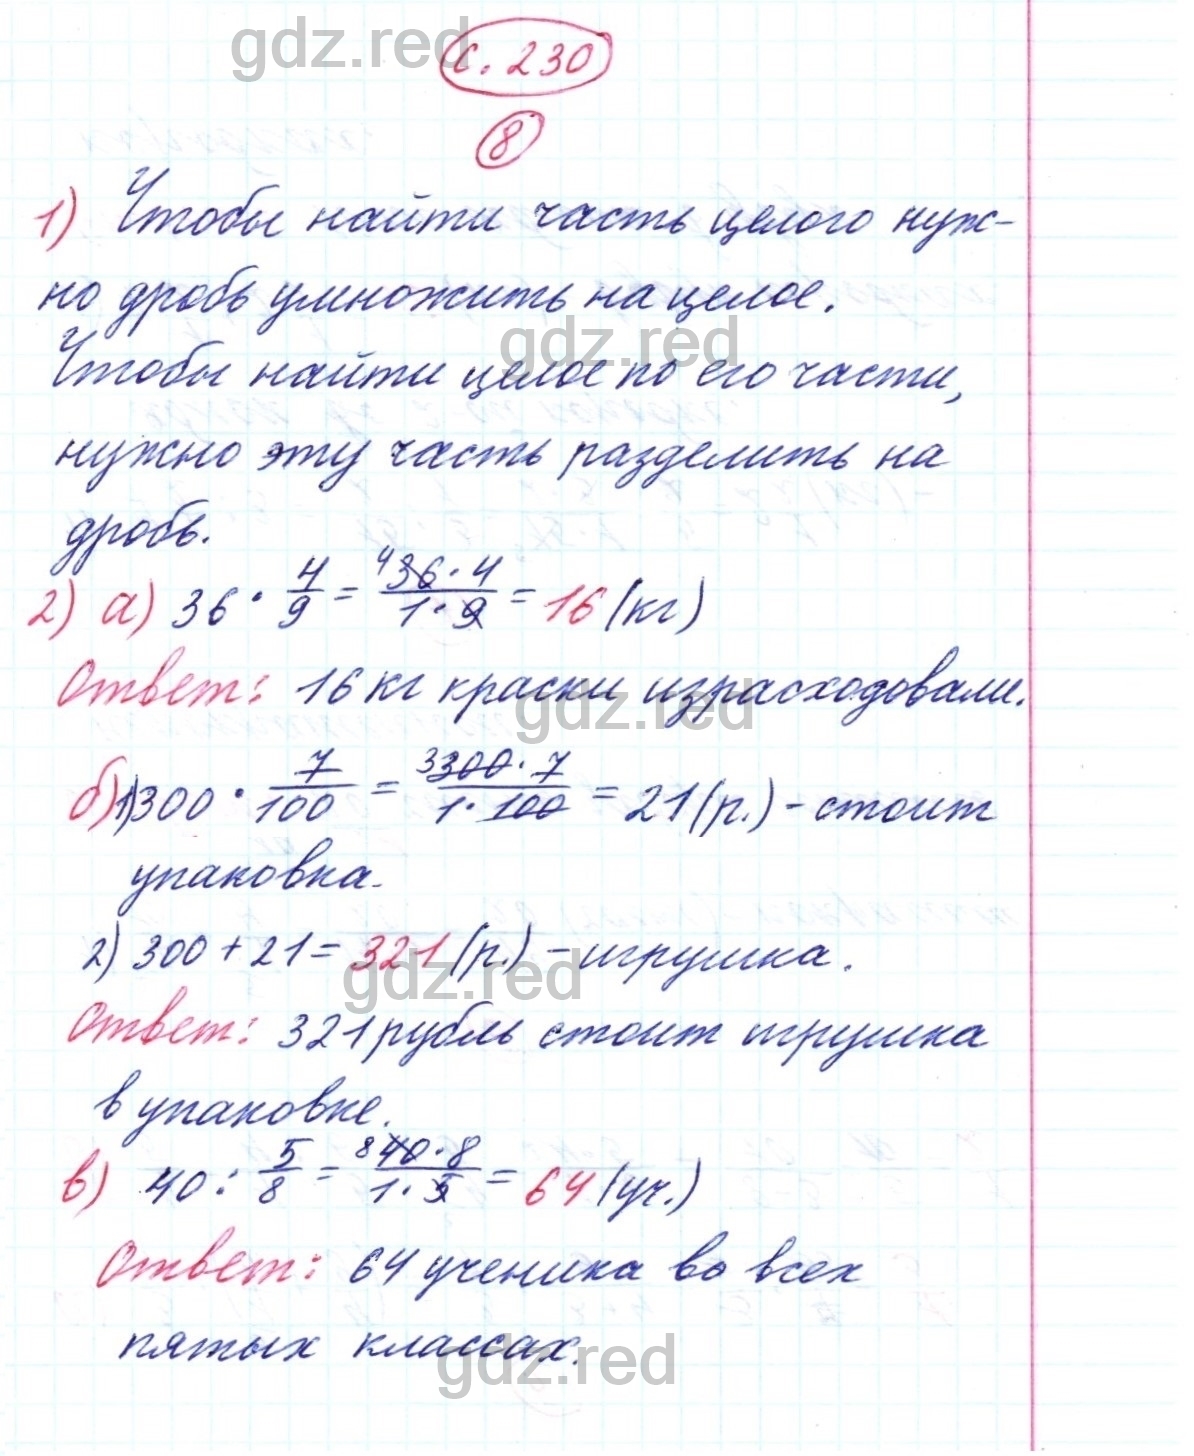 gdz.red
с. 230
8
1) Чтобы найти часть целого нуж-
но дробь умножить на целое.
gdz.red
Чтобы найти целое по его части,
нужно эту часть разделить на
дробь.
2) а) 36 · 4/9 = ⁴36·4/1·9 = 16 (кг)
Ответ: 16 кг краски израсходовали.
gdz.red
б) 1) 300 · 7/100 = ³300·7/1·100 = 21 (р.) - стоит
упаковка.
2) 300 + 21 = 321 (р.) - игрушка.
gdz.red
Ответ: 321 рубль стоит игрушка
в упаковке.
в) 40 : 5/8 = ⁸40·8/1·5 = 64 (уч.)
Ответ: 64 ученика во всех
пятых классах.
gdz.red